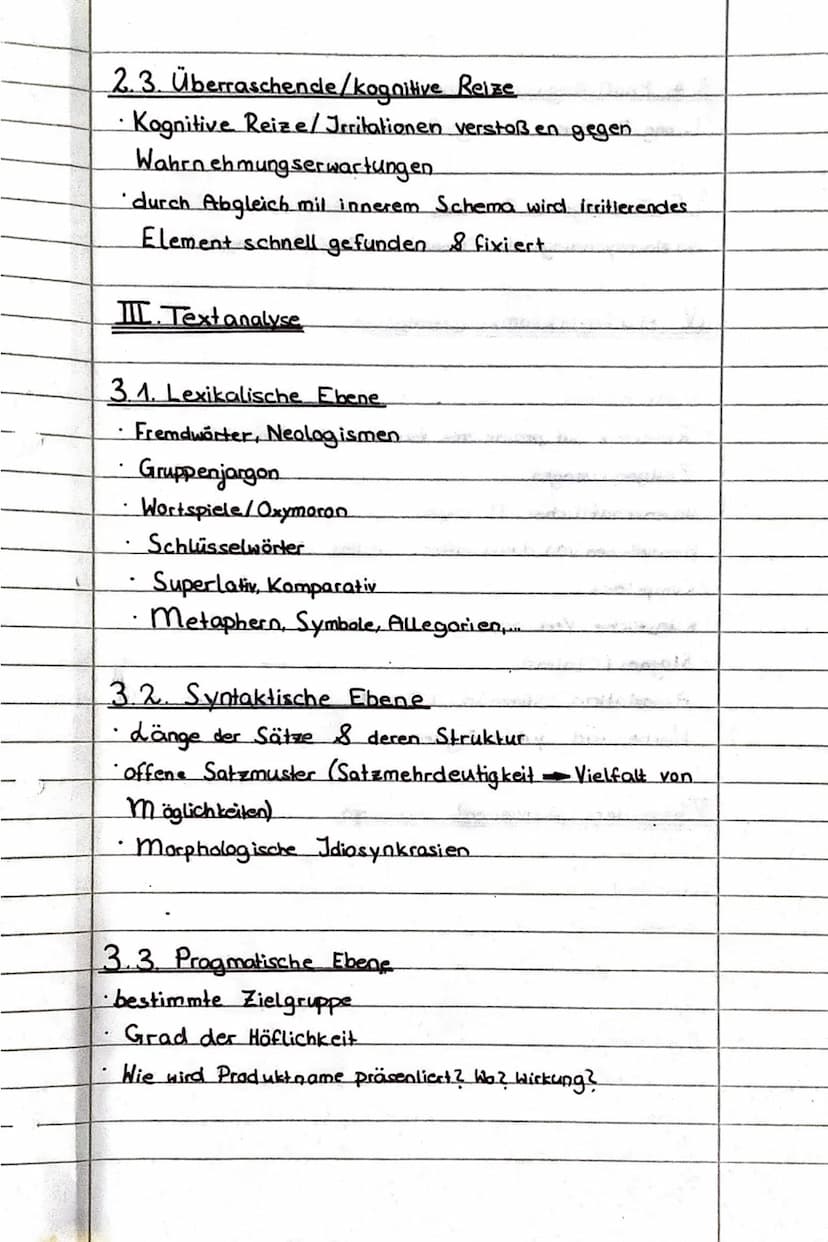 2.3. Überraschende/kognitive Reize
· Kognitive Reize/Irritationen verstoßen gegen
Wahrnehmungserwartungen
· durch Abgleich mit innerem Schema wird irritierendes
Element schnell gefunden & fixiert
III. Textanalyse
3.1. Lexikalische Ebene
· Fremdwörter, Neologismen
· Gruppenjargon
· Wortspiele/Oxymoron
· Schlüsselwörter
· Superlativ, Komparativ
· Metaphern, Symbole, Allegorien,...
3.2. Syntaktische Ebene
· Länge der Sätze & deren Struktur
· offene Satzmuster (Satzmehrdeutigkeit → Vielfalt von
Möglichkeiten)
· Morphologische Idiosynkrasien
3.3. Pragmatische Ebene
· bestimmte Zielgruppe
· Grad der Höflichkeit
· Wie wird Produktname präsentiert? Wo? Wirkung?